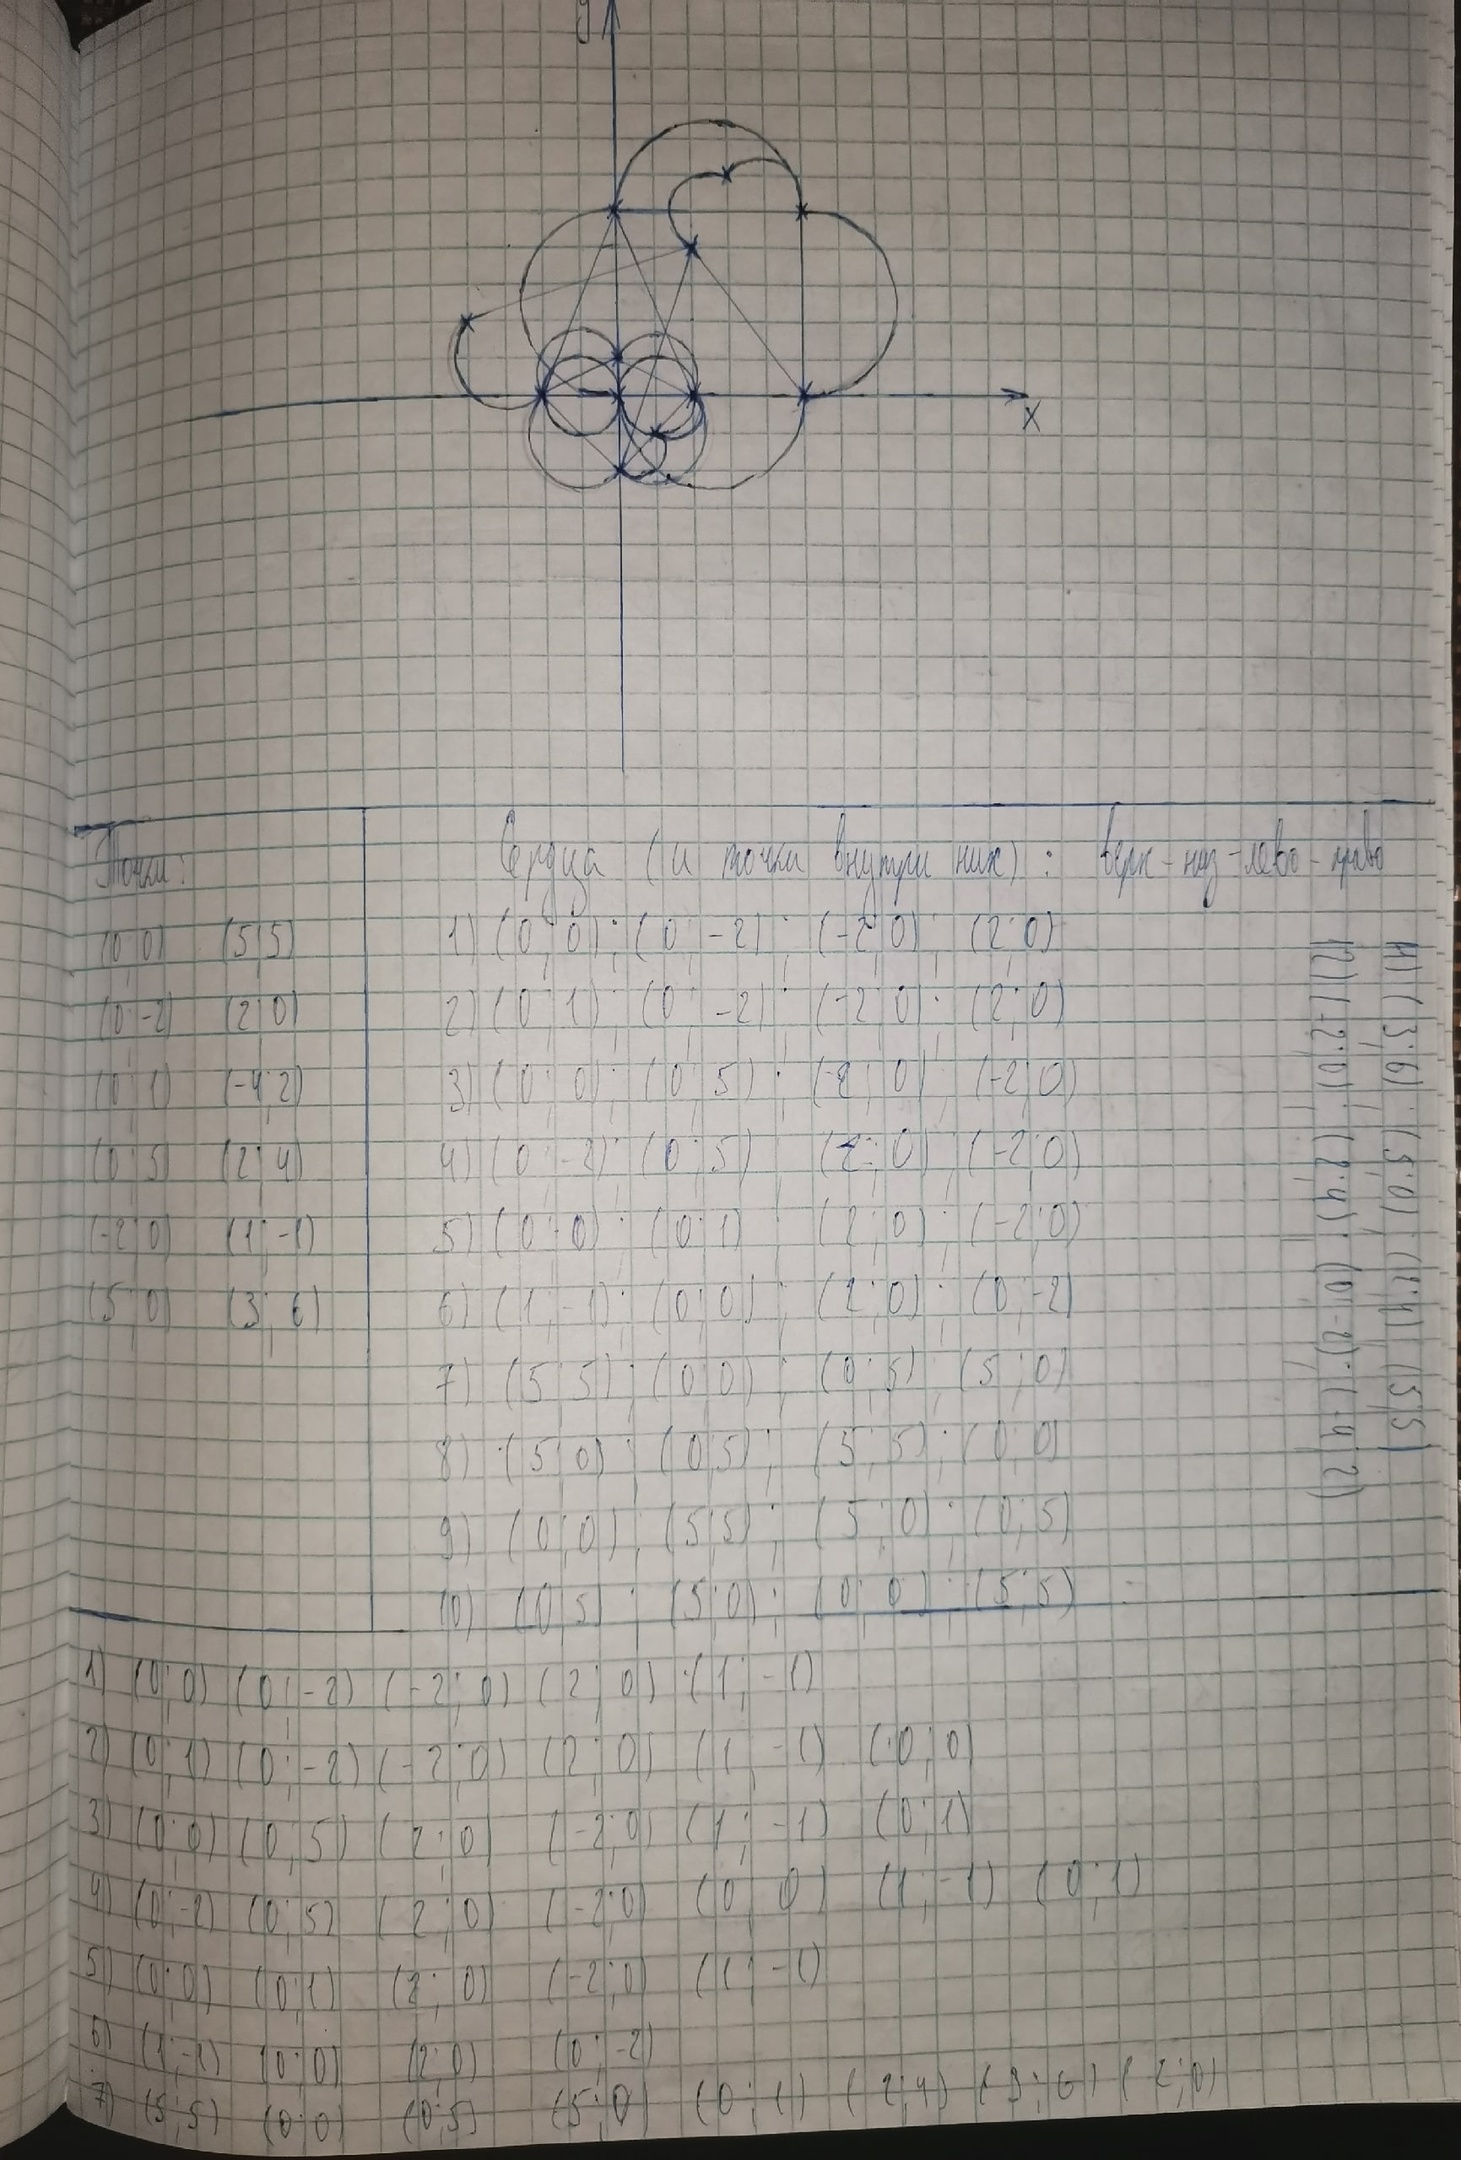 y
x
Точки:
Сердца (и точки внутри них): верх-низ-лево-право
(0;0) (5;5)
(0;-2) (2;0)
(0;1) (-4;2)
(0;5) (2;4)
(-2;0) (1;-1)
(5;0) (3;6)
1) (0;0); (0;-2); (-2;0); (2;0)
2) (0;1); (0;-2); (-2;0); (2;0)
3) (0;0); (0;5); (2;0); (-2;0)
4) (0;-2); (0;5); (2;0); (-2;0)
5) (0;0); (0;1); (2;0); (-2;0)
6) (1;-1); (0;0); (2;0); (0;-2)
7) (5;5); (0;0); (0;5); (5;0)
8) (5;0); (0;5); (5;5); (0;0)
9) (0;0); (5;5); (5;0); (0;5)
10) (0;5); (5;0); (0;0); (5;5)
11) (3;6); (5;0); (2;4); (5;5)
12) (-2;0); (2;4); (0;-2); (-4;2)
1) (0;0) (0;-2) (-2;0) (2;0) (1;-1)
2) (0;1) (0;-2) (-2;0) (2;0) (1;-1) (0;0)
3) (0;0) (0;5) (2;0) (-2;0) (1;-1) (0;1)
4) (0;-2) (0;5) (2;0) (-2;0) (0;0) (1;-1) (0;1)
5) (0;0) (0;1) (2;0) (-2;0) (1;-1)
6) (1;-1) (0;0) (2;0) (0;-2)
7) (5;5) (0;0) (0;5) (5;0) (0;1) (2;4) (3;6) (2;0)